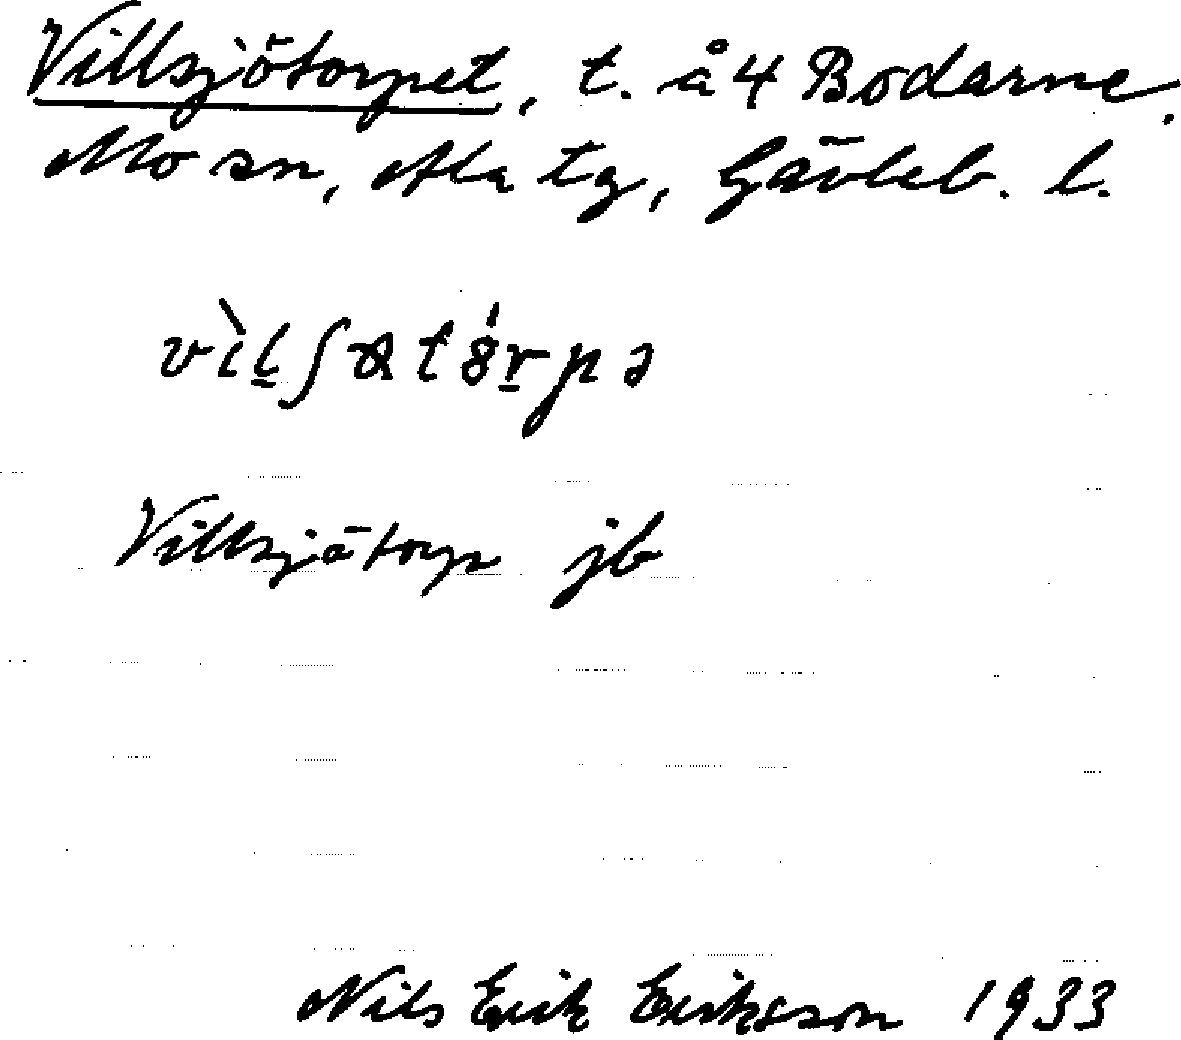 Villsjötorpet, t. å 4 Bodarne.
Mo sn, Ala tg, Gävleb. l.
Villsjötorp jb
Nils Erik Eriksson 1933